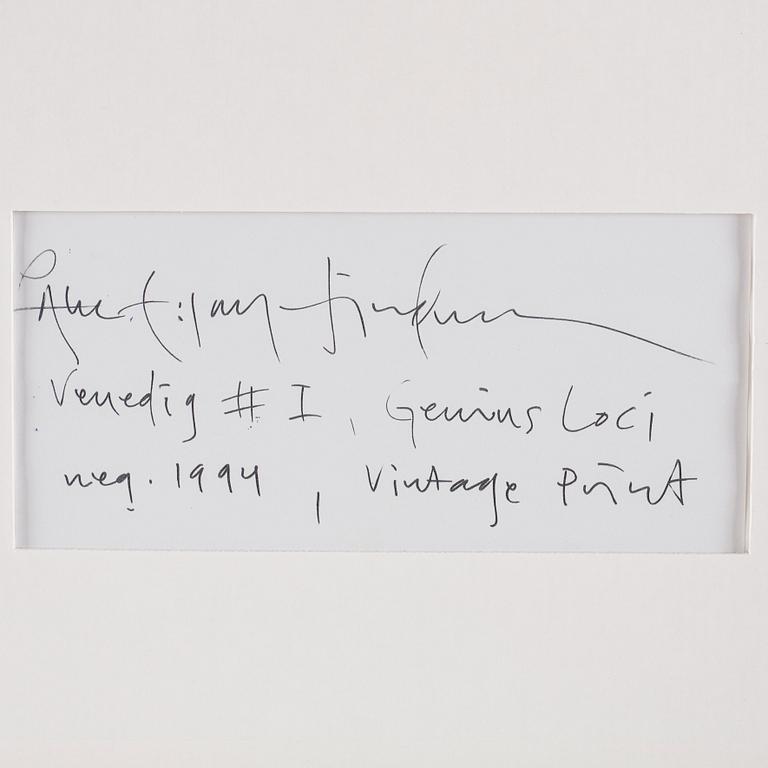 Venedig # I, Genius Loci
neg. 1994, Vintage Print